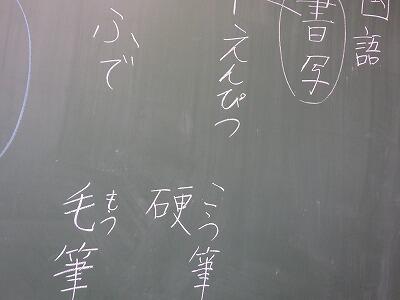 国語
書写
えんぴつ
こう筆
硬
ふで
もう
毛筆